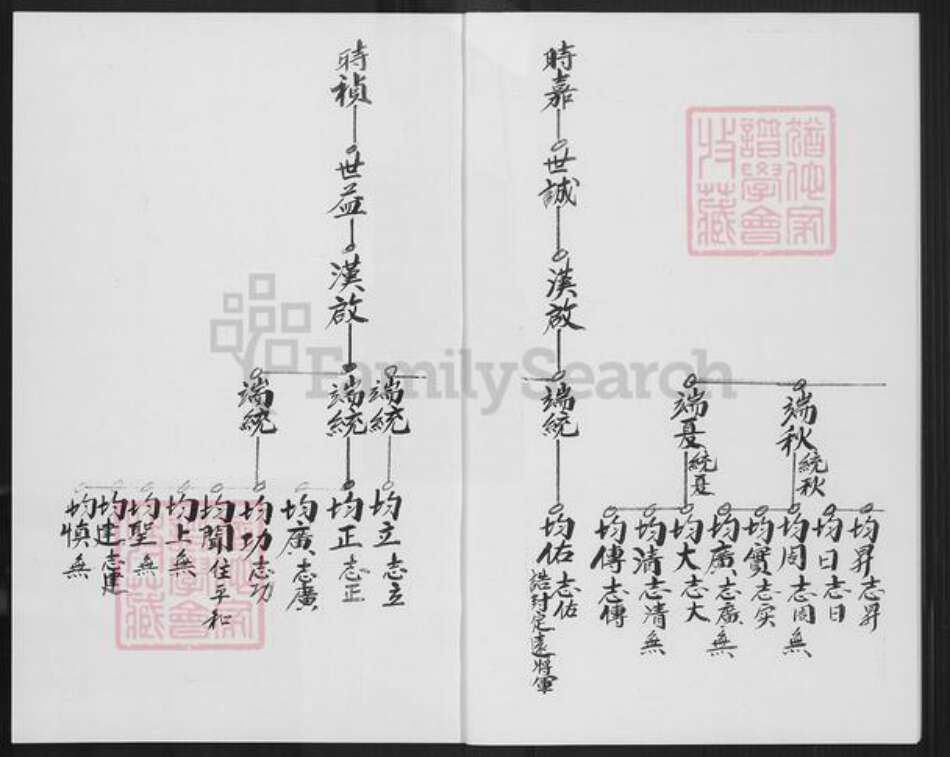 時嘉
世誠
漢啟
端秋 統秋
端夏 統夏
端統
均昇 志昇
均日 志日
均周 志周 無
均實 志实
均廣 志廣 無
均大 志大
均清 志清 無
均傳 志傳
均佑 志佑
誥封定遠將軍
時禎
世益
漢啟
端統
端統
端統
均立 志立
均正 志正
均廣 志廣
均功 志功
均聞 住平和
均上 無
均聖 無
均建 志建
均慎 無
家譜學會收藏
FamilySearch